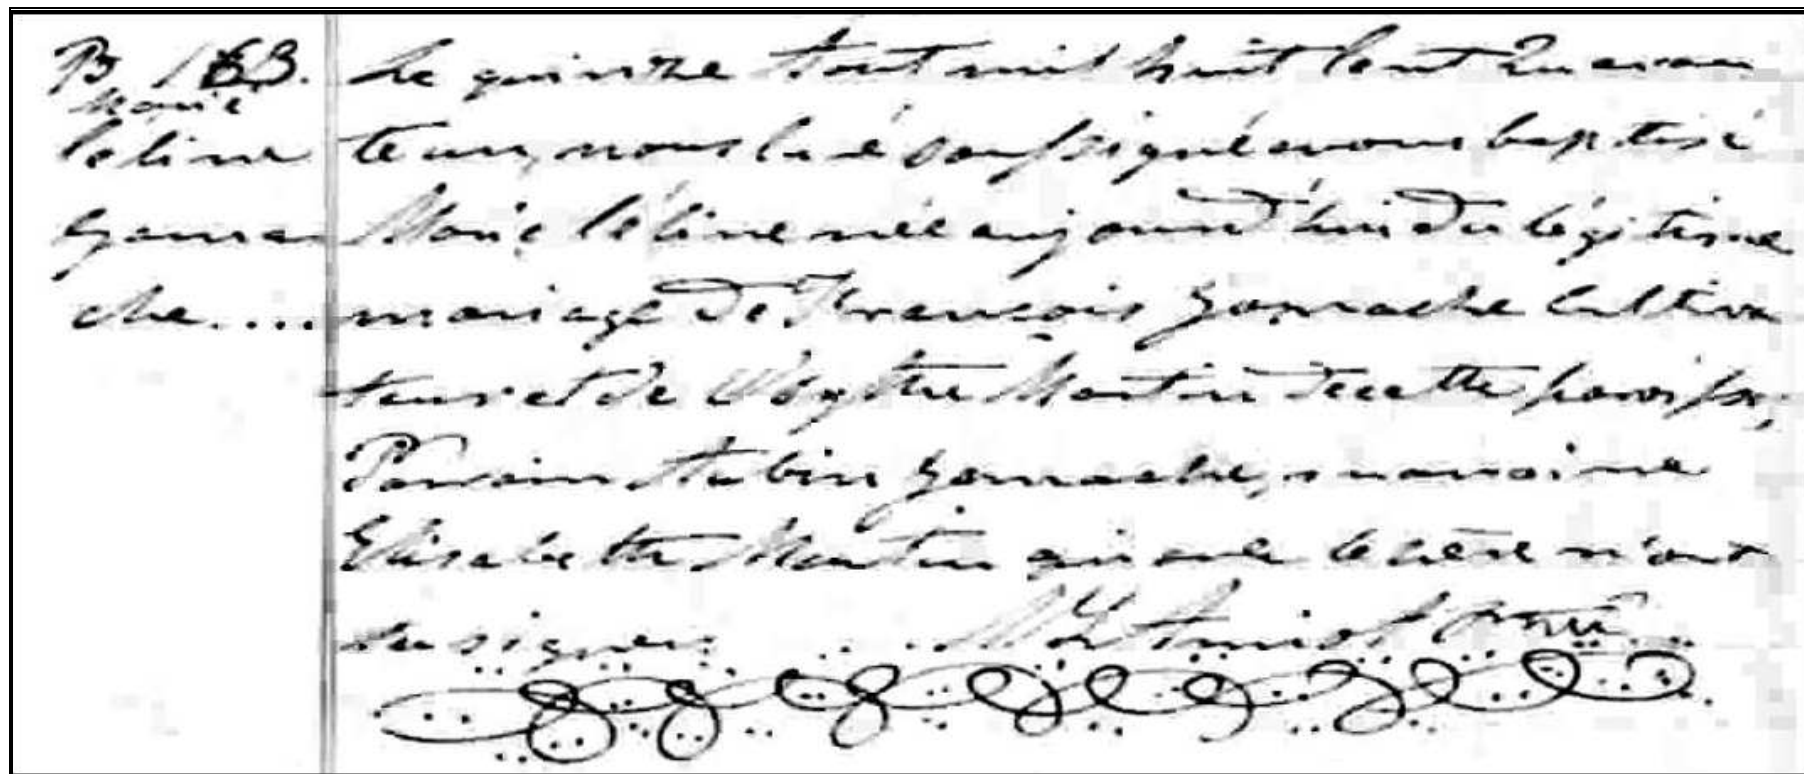 B 163.
Marie
Céline
Gama
che....
Le quinze Aout mil huit Cent Quaran
te un, nous Curé soussigné avons baptisé
Marie Céline née aujourd'hui du légitime
mariage de François Gamache Cultiva
teur et de Marie Martin de cette paroisse,
Parrain Aubin Gamache, maraine
Elisabeth Martin qui avec le père n'ont
su signer.